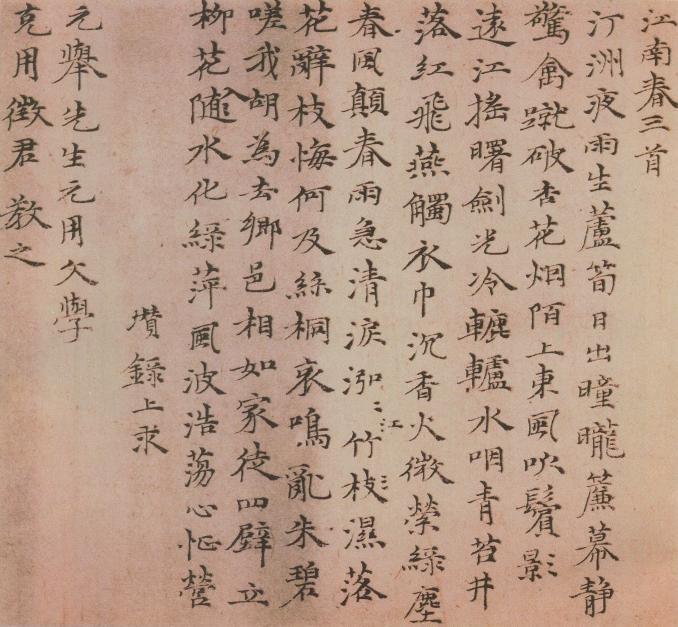 江南春三首
汀洲夜雨生蘆筍日出曈曨簾幕静
驚禽蹴破杏花烟陌上東風吹鬢影
遠江搖曙劍光冷轆轤水咽青苔井
落紅飛燕觸衣巾沉香火微縈緑塵
春風顛春雨急清淚泓〻江竹枝濕落
花辭枝悔何及絲桐哀鳴亂朱碧
嗟我胡為去鄉邑相如家徒四壁立
柳花隨水化緑萍風波浩蕩心怔營
瓚錄上求
元舉先生元用文學
克用徵君教之